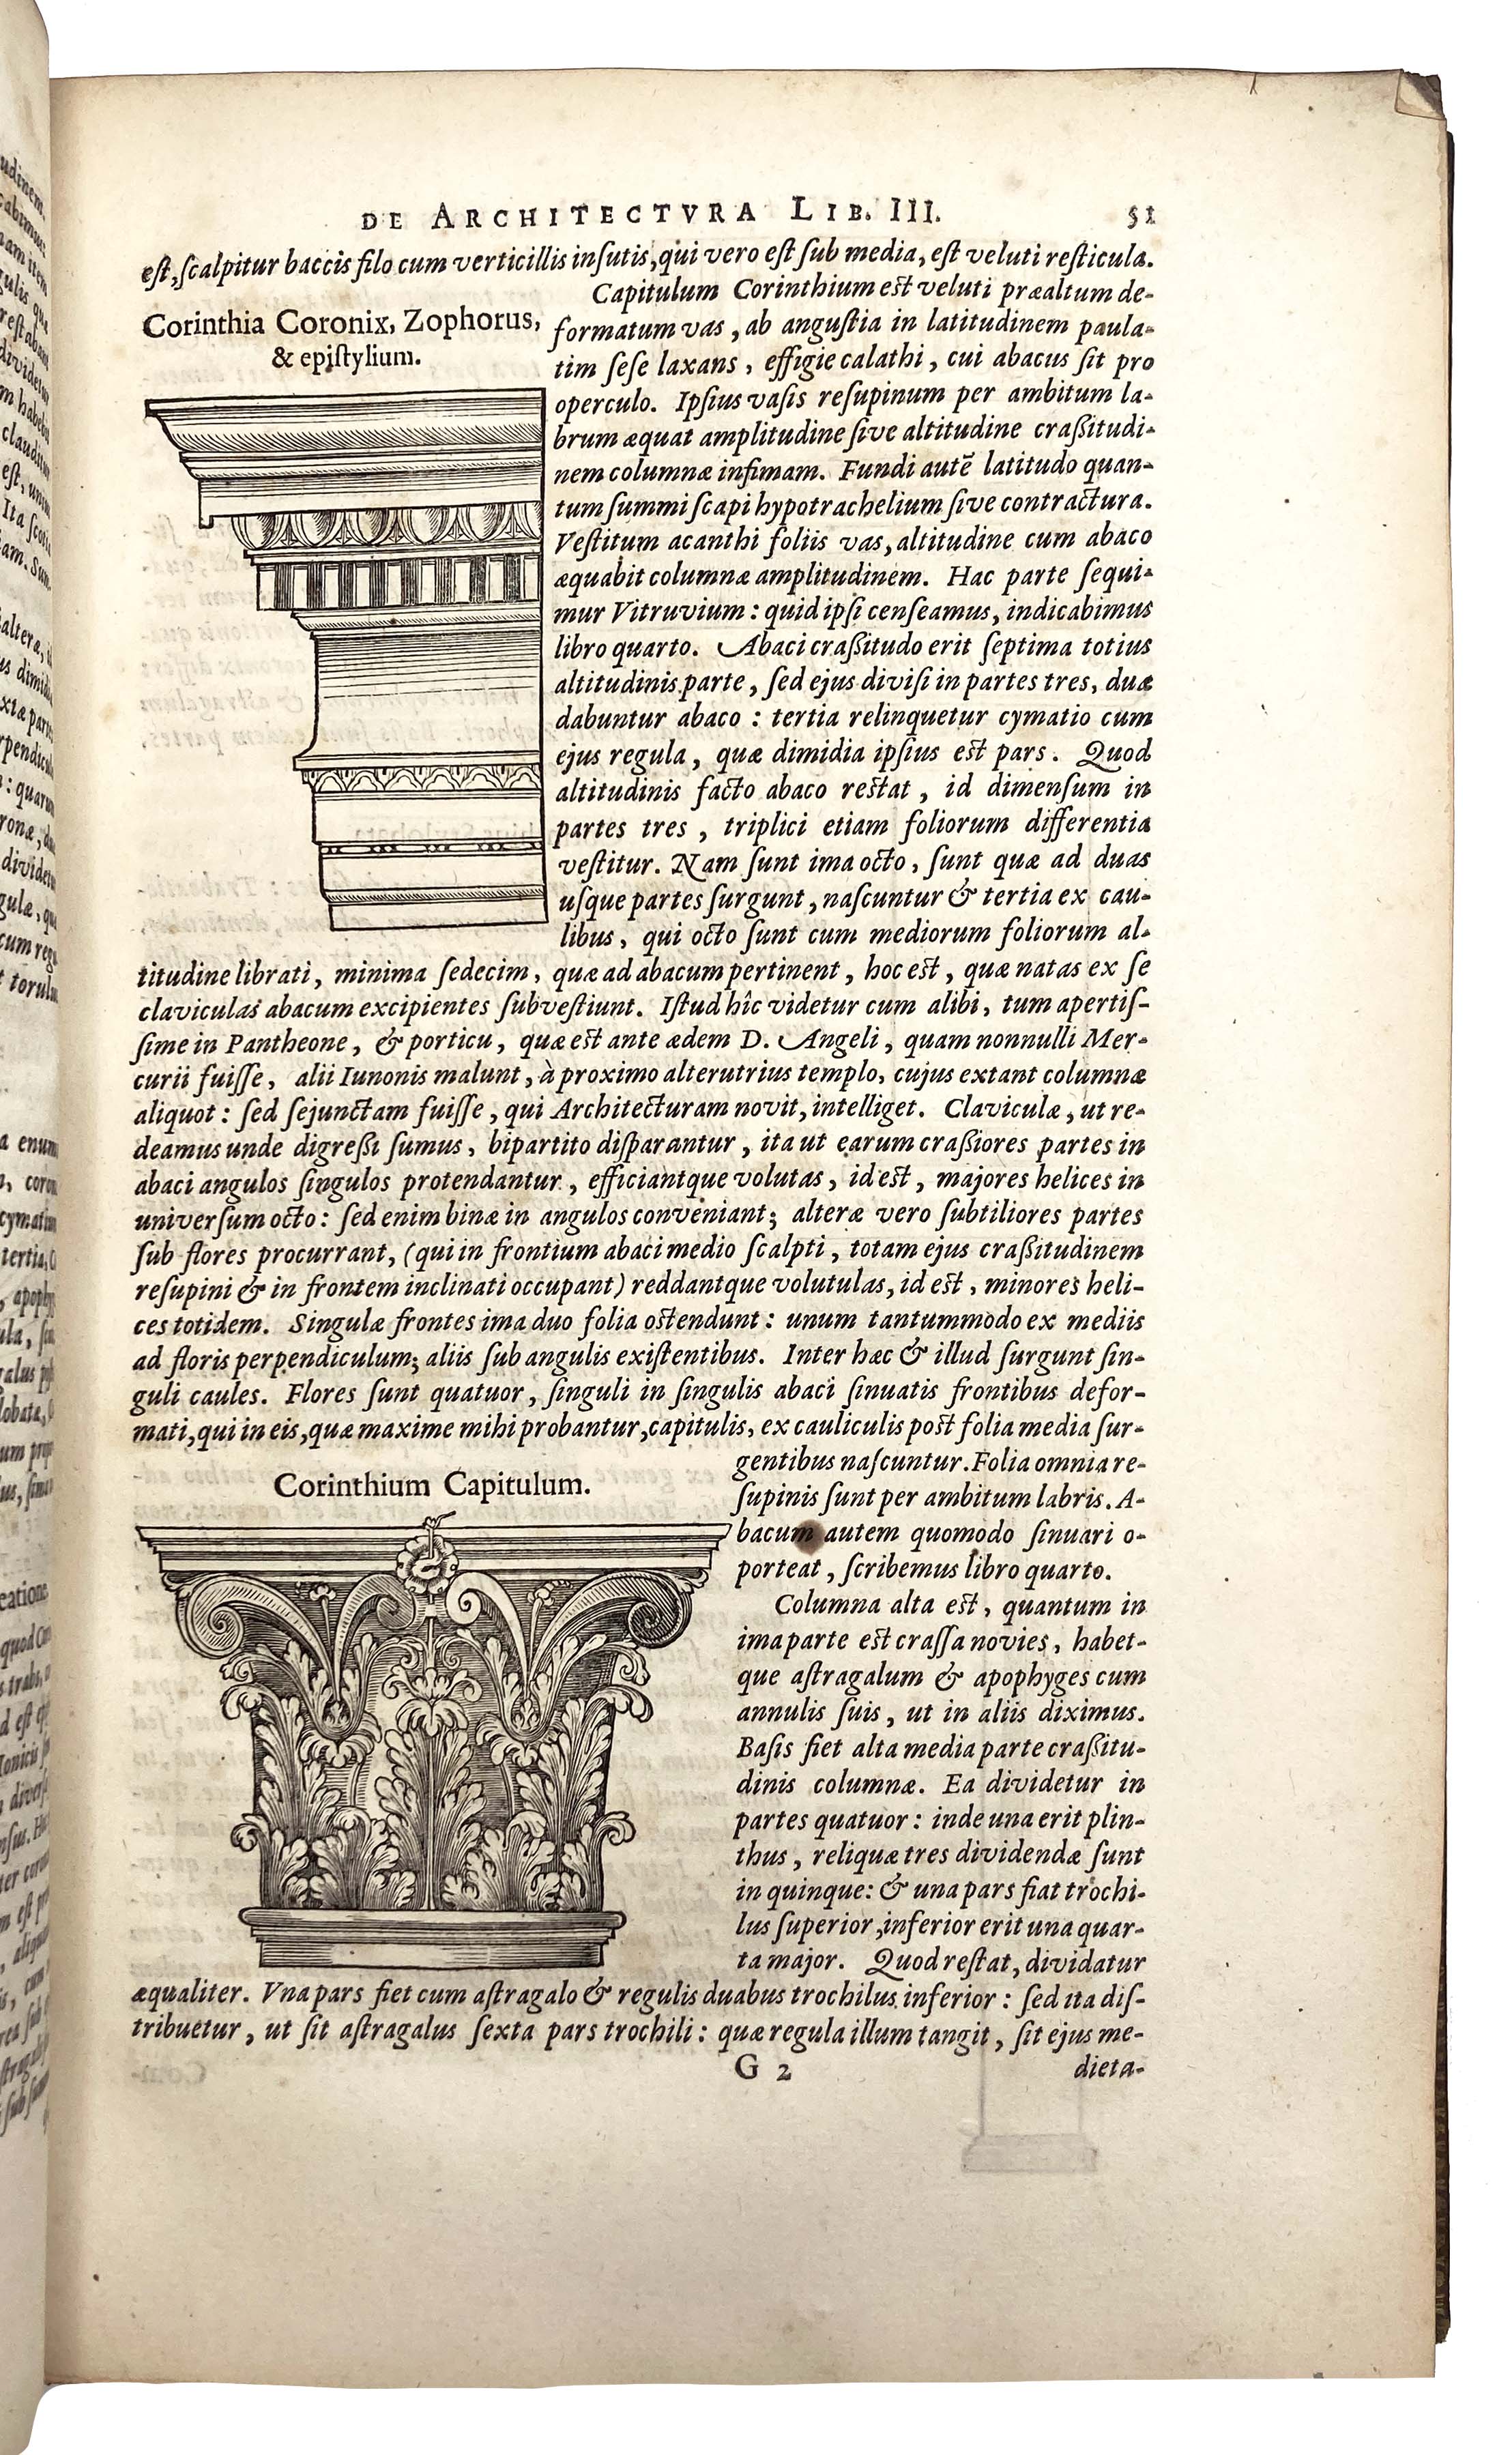 DE ARCHITECTVRA LIB. III. 51
est, scalpitur baccis filo cum verticillis insutis, qui vero est sub media, est veluti resticula.
Corinthia Coronix, Zophorus,
& epistylium.
Capitulum Corinthium est veluti præaltum de-
formatum vas, ab angustia in latitudinem paula-
tim sese laxans, effigie calathi, cui abacus sit pro
operculo. Ipsius vasis resupinum per ambitum la-
brum æquat amplitudine sive altitudine craßitudi-
nem columnæ infimam. Fundi autē latitudo quan-
tum summi scapi hypotrachelium sive contractura.
Vestitum acanthi foliis vas, altitudine cum abaco
æquabit columnæ amplitudinem. Hac parte sequi-
mur Vitruvium: quid ipsi censeamus, indicabimus
libro quarto. Abaci craßitudo erit septima totius
altitudinis parte, sed ejus divisi in partes tres, duæ
dabuntur abaco: tertia relinquetur cymatio cum
ejus regula, quæ dimidia ipsius est pars. Quod
altitudinis facto abaco restat, id dimensum in
partes tres, triplici etiam foliorum differentia
vestitur. Nam sunt ima octo, sunt quæ ad duas
usque partes surgunt, nascuntur & tertia ex cau-
libus, qui octo sunt cum mediorum foliorum al-
titudine librati, minima sedecim, quæ ad abacum pertinent, hoc est, quæ natas ex se
claviculas abacum excipientes subvestiunt. Istud hîc videtur cum alibi, tum apertis-
sime in Pantheone, & porticu, quæ est ante ædem D. Angeli, quam nonnulli Mer-
curii fuisse, alii Iunonis malunt, à proximo alterutrius templo, cujus extant columnæ
aliquot: sed sejunctam fuisse, qui Architecturam novit, intelliget. Claviculæ, ut re-
deamus unde digreßi sumus, bipartito disparantur, ita ut earum craßiores partes in
abaci angulos singulos protendantur, efficiantque volutas, id est, majores helices in
universum octo: sed enim binæ in angulos conveniant; alteræ vero subtiliores partes
sub flores procurrant, (qui in frontium abaci medio scalpti, totam ejus craßitudinem
resupini & in frontem inclinati occupant) reddantque volutulas, id est, minores heli-
ces totidem. Singulæ frontes ima duo folia ostendunt: unum tantummodo ex mediis
ad floris perpendiculum; aliis sub angulis existentibus. Inter hæc & illud surgunt sin-
guli caules. Flores sunt quatuor, singuli in singulis abaci sinuatis frontibus defor-
mati, qui in eis, quæ maxime mihi probantur, capitulis, ex cauliculis post folia media sur-
Corinthium Capitulum.
gentibus nascuntur. Folia omnia re-
supinis sunt per ambitum labris. A-
bacum autem quomodo sinuari o-
porteat, scribemus libro quarto.
Columna alta est, quantum in
ima parte est crassa novies, habet-
que astragalum & apophyges cum
annulis suis, ut in aliis diximus.
Basis fiet alta media parte craßitu-
dinis columnæ. Ea dividetur in
partes quatuor: inde una erit plin-
thus, reliquæ tres dividendæ sunt
in quinque: & una pars fiat trochi-
lus superior, inferior erit una quar-
ta major. Quod restat, dividatur
æqualiter. Vna pars fiet cum astragalo & regulis duabus trochilus inferior: sed ita dis-
tribuetur, ut sit astragalus sexta pars trochili: quæ regula illum tangit, sit ejus me-
G 2 dieta-